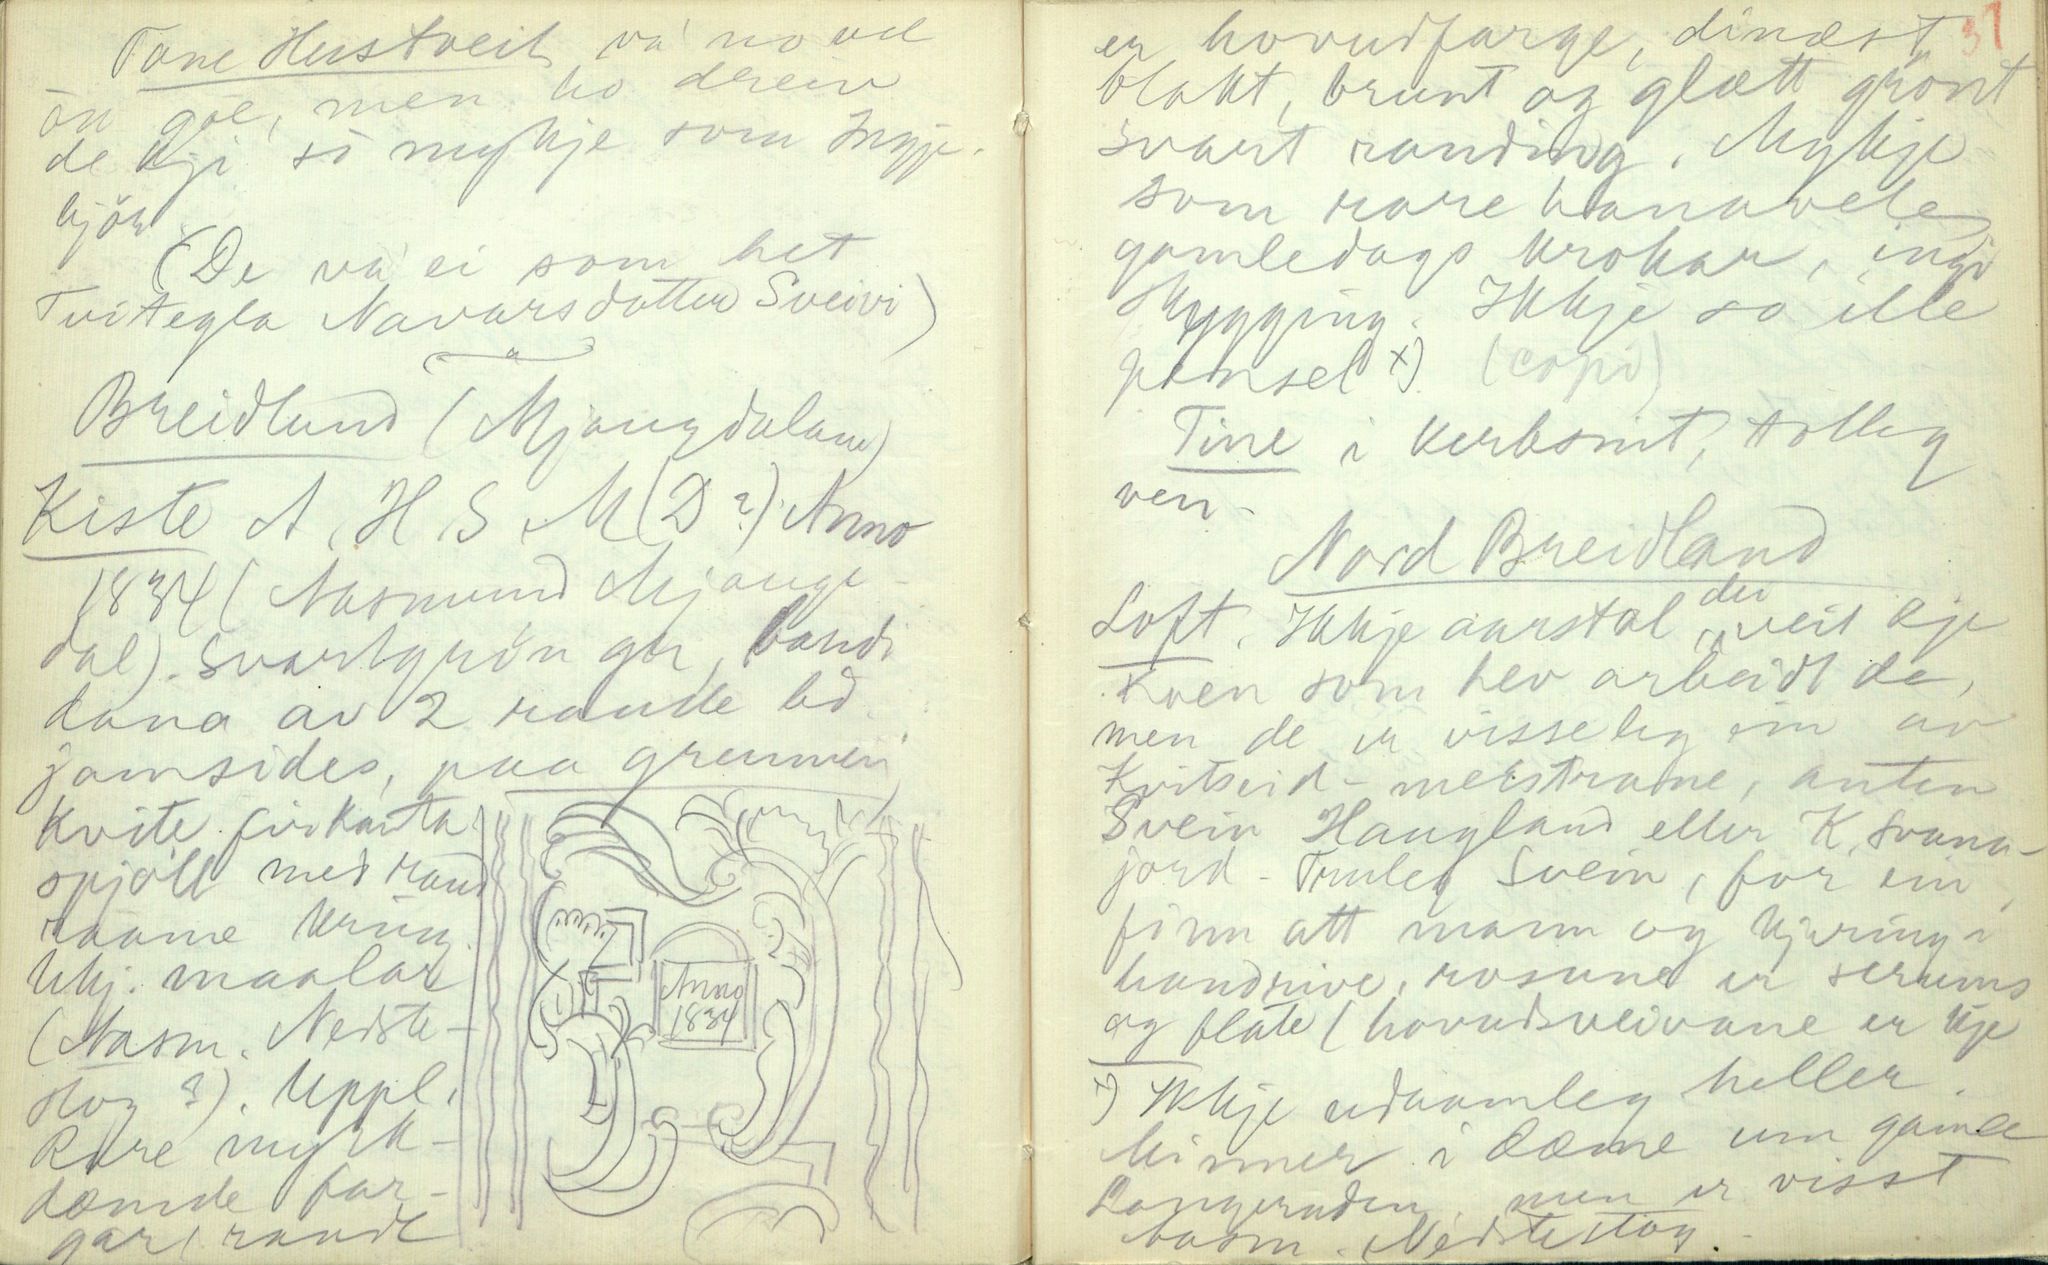 Tone Hustveit, va no vel
ön goe, men ho dreiv
de kji so mykje som Ingje-
björ
(De va ei som het
Tvitegla Navarsdotter Sveivi)
Breidland (Mjaugdalane)
Kiste A. H. S. M (D ?). Anno
1834 (Aasmund Mjauge-
dal). Svartgrön gr, bandi
dana av 2 raude bd.
jamsides, paa grunnen
kvite firkanta
spjöll med raud
raame kring.
Ukj. maalar
(Aasm. Nedste-
stog ?). Uppl.
Rare myrk-
dæmde far-
gar, raudt
Anno
1834
37
er hovudfarge, dinæst
blakt, brunt og glætt grönt
svart randing. Mykje
som rare hanavele
gamledags krokar, ingi
skygging. Ikkje so ille
pensel x) (copi)
Tine i karbsnit, tolleg
ven.
Nord Breidland
Loft. Ikkje aarstal, dei veit kje
kven som hev arbeidt de,
men de er visseleg ein av
Kvitseid-meistrane, anten
Svein Haugland eller K. Svana-
jord. Truleg Svein, for ein
finn att mann og kjæring i
handrive, rosune er serums
og flate (hovudsveivane er kje
x) Ikkje udaamleg heller.
Minner i dæme um gamle
men er visst
Aasm. Nedstestog.